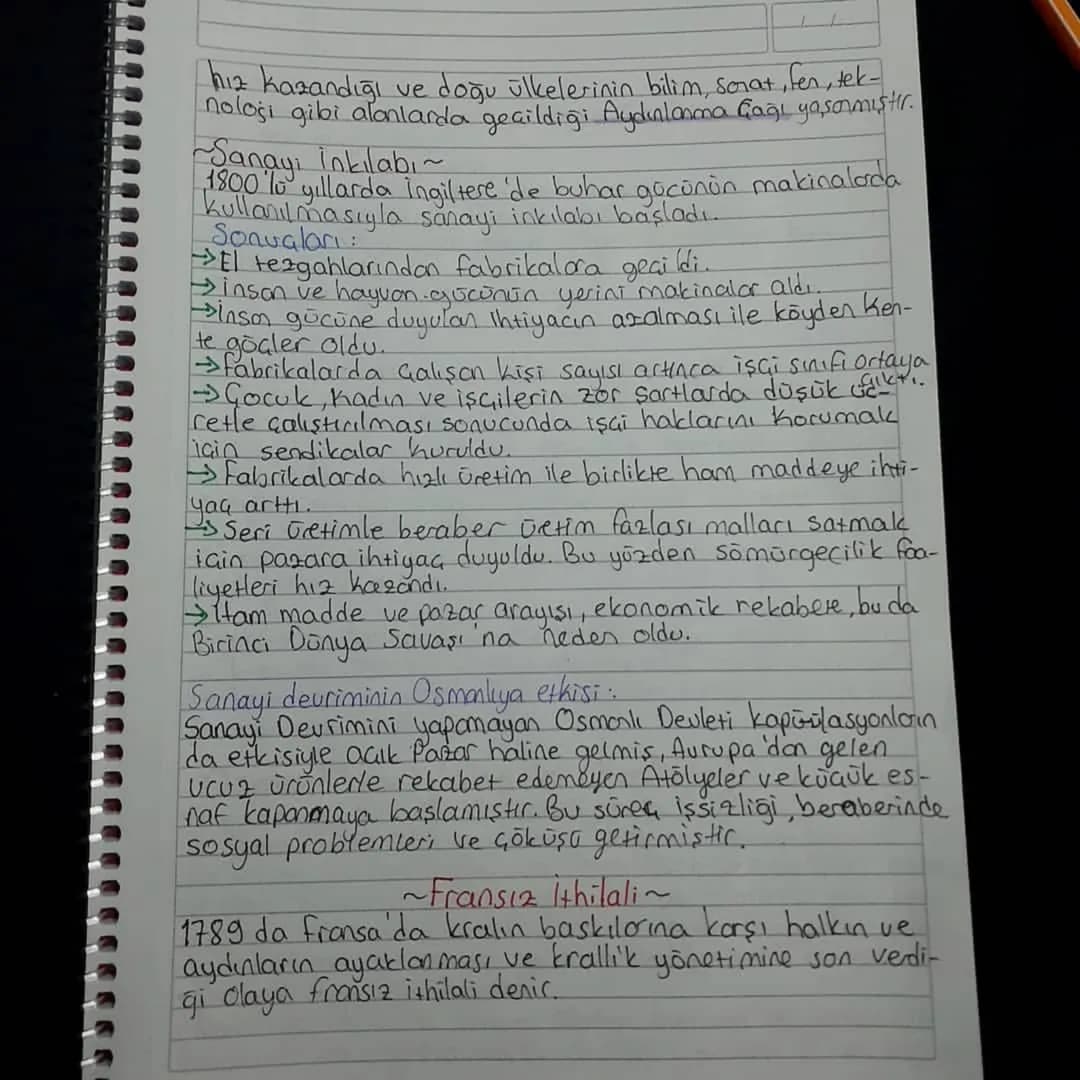 hız kazandığı ve doğu ülkelerinin bilim, sanat, fen, tek-
noloji gibi alanlarda geçildiği Aydınlanma Çağı yaşanmıştır.
~Sanayi İnkılabı~
1800'lü yıllarda İngiltere'de buhar gücünün makinalarda
kullanılmasıyla sanayi inkılabı başladı.
Sonuçları:
→El tezgahlarından fabrikalara geçildi.
→insan ve hayvan gücünün yerini makinalar aldı.
→İnsan gücüne duyulan ihtiyacın azalması ile köyden ken-
te göçler oldu.
→Fabrikalarda çalışan kişi sayısı artınca işçi sınıfı ortaya
çıktı.
→Çocuk, kadın ve işçilerin zor şartlarda düşük üc-
retle çalıştırılması sonucunda işçi haklarını korumak
için sendikalar kuruldu.
→Fabrikalarda hızlı üretim ile birlikte ham maddeye ihti-
yaç arttı.
→Seri üretimle beraber üretim fazlası malları satmak
için pazara ihtiyaç duyuldu. Bu yüzden sömürgecilik faa-
liyetleri hız kazandı.
→Ham madde ve pazar arayışı, ekonomik rekabete, bu da
Birinci Dünya Savaşı'na neden oldu.
Sanayi devriminin Osmanlıya etkisi:
Sanayi Devrimini yapamayan Osmanlı Devleti kapütülasyonların
da etkisiyle açık Pazar haline gelmiş, Avrupa'dan gelen
ucuz ürünlerle rekabet edemeyen Atölyeler ve küçük es-
naf kapanmaya başlamıştır. Bu süreç işsizliği, beraberinde
sosyal problemleri ve çöküşü getirmiştir.
~Fransız İthilali~
1789 da Fransa'da kralın baskılarına karşı halkın ve
aydınların ayaklanması ve krallık yönetimine son verdi-
ği olaya fransız ithilali denir.